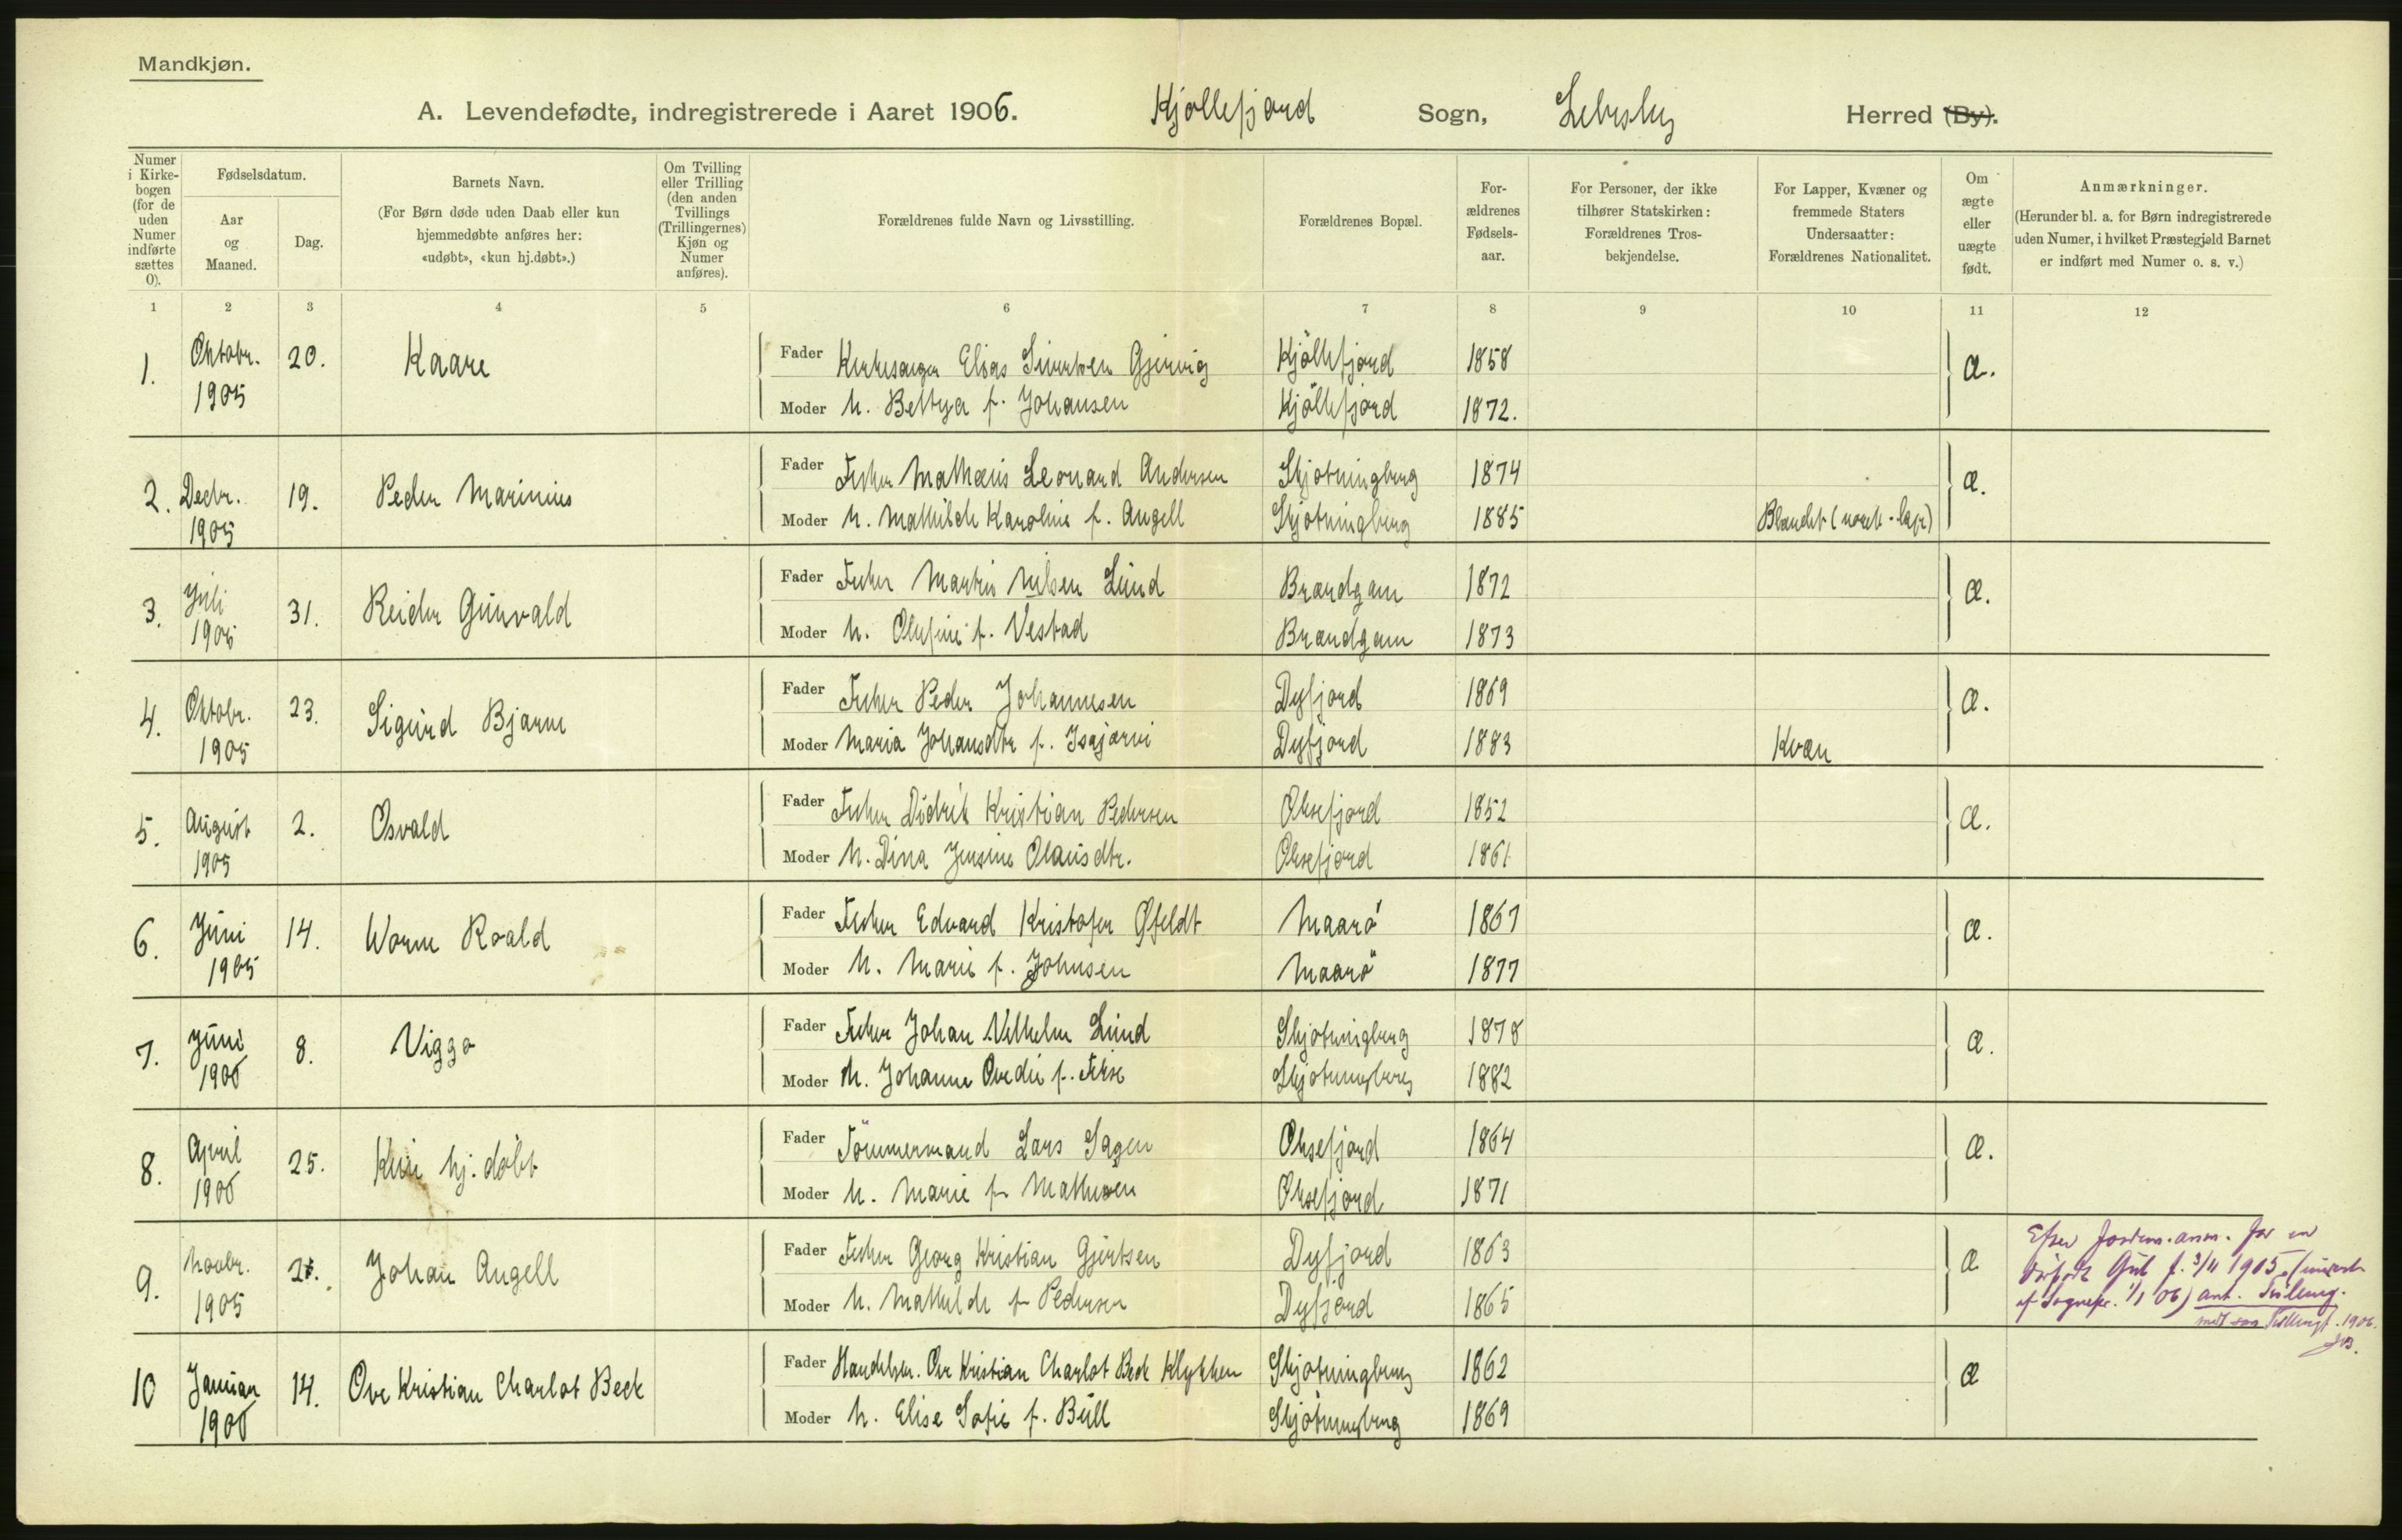 Mandkjøn.
A. Levendefødte, indregistrerede i Aaret 1906. Kjøllefjord Sogn, Lebesby Herred (By).
Numer i Kirkebogen (for de uden Numer indførte sættes 0).
Fødselsdatum.
Aar og Maaned.
Dag.
Barnets Navn.
(For Børn døde uden Daab eller kun hjemmedøbte anføres her: «udøbt», «kun hj.døbt».)
Om Tvilling eller Trilling (den anden Tvillings (Trillingernes) Kjøn og Numer anføres).
Forældrenes fulde Navn og Livsstilling.
Forældrenes Bopæl.
Forældrenes Fødselsaar.
For Personer, der ikke tilhører Statskirken: Forældrenes Trosbekjendelse.
For Lapper, Kvæner og fremmede Staters Undersaatter: Forældrenes Nationalitet.
Om ægte eller uægte født.
Anmærkninger.
(Herunder bl. a. for Børn indregistrerede uden Numer, i hvilket Præstegjeld Barnet er indført med Numer o. s. v.)
1 2 3 4 5 6 7 8 9 10 11 12
1. Oktobr. 1905 20. Kaare
Fader Kirkesanger Elias Sivertsen Gjervig Kjöllefjord 1858 Æ.
Moder h. Bettya f. Johansen Kjöllefjord 1872.
2. Decbr. 1905 19. Peder Marinius
Fader Fisker Mathæus Leonard Andersen Skjøtningberg 1874 Æ.
Moder h. Mathilde Karoline f. Angell Skjøtningberg 1885 Blandet (norsk-lap)
3. Juli 1905 31. Reidar Gunvald
Fader Fisker Martin Nilsen Lund Brandgam 1872 Æ.
Moder h. Olufine f. Vestad Brandgam 1873
4. Oktobr. 1905 23. Sigurd Bjarne
Fader Fisker Peder Johannesen Dyfjord 1869 Æ.
Moder Maria Johansdtr f. Isajærvi Dyfjord 1883 Kvæn
5. August 1905 2. Osvald
Fader Fisker Didrik Kristian Pedersen Oksefjord 1852 Æ.
Moder h. Dina Jensine Olausdtr. Oksefjord 1861
6. Juni 1905 14. Worm Roald
Fader Fisker Edvard Kristofer Øfeldt Maarö 1867 Æ.
Moder h. Marie f. Johnsen Maarö 1877
7. Juni 1906 8. Viggo
Fader Fisker Johan Vilhelm Lund Skjøtningberg 1878 Æ.
Moder h. Johanne Ovedie f. Friis Skjøtningberg 1882
8. April 1906 25. Kun hj. døbt
Fader Tömmermand Lars Sagen Oksefjord 1864 Æ.
Moder h. Marie f. Mathisen Oksefjord 1871
9. Novbr. 1905 2. Johan Angell
Fader Fisker Georg Kristian Gjertsen Dyfjord 1863 Æ
Moder h. Mathilde f. Pedersen Dyfjord 1865
Efter Jordm. anm. før en
dødfødt Gut f. 3/11 1905
af Sognepr. 1/1 06) ant. Tvilling.
1906.
10 Januar 1906 14. Ove Kristian Charlot Beck
Fader Handelsm. Ove Kristian Charlot Beck Klykken Skjøtningberg 1862 Æ
Moder h. Elise Sofie f. Büll Skjøtningberg 1869